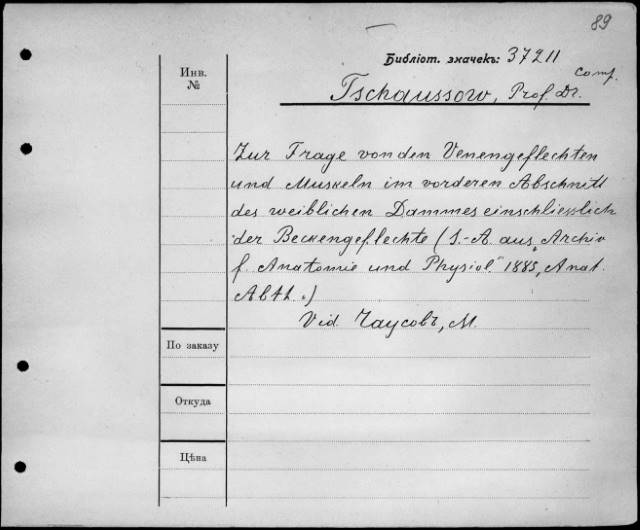 89
Библіот. значекъ: 37211
Comp.
Инв.
№
Tschaussow, Prof. Dr.
Zur Frage von den Venengeflechten
und Muskeln im vorderen Abschnitt
des weiblichen Dammes einschliesslich
der Beckengeflechte (S.-A. aus „Archiv
f. Anatomie und Physiol." 1885, Anat.
Abth.)
Vid. Чаусовъ, М.
По заказу
Откуда
Цѣна